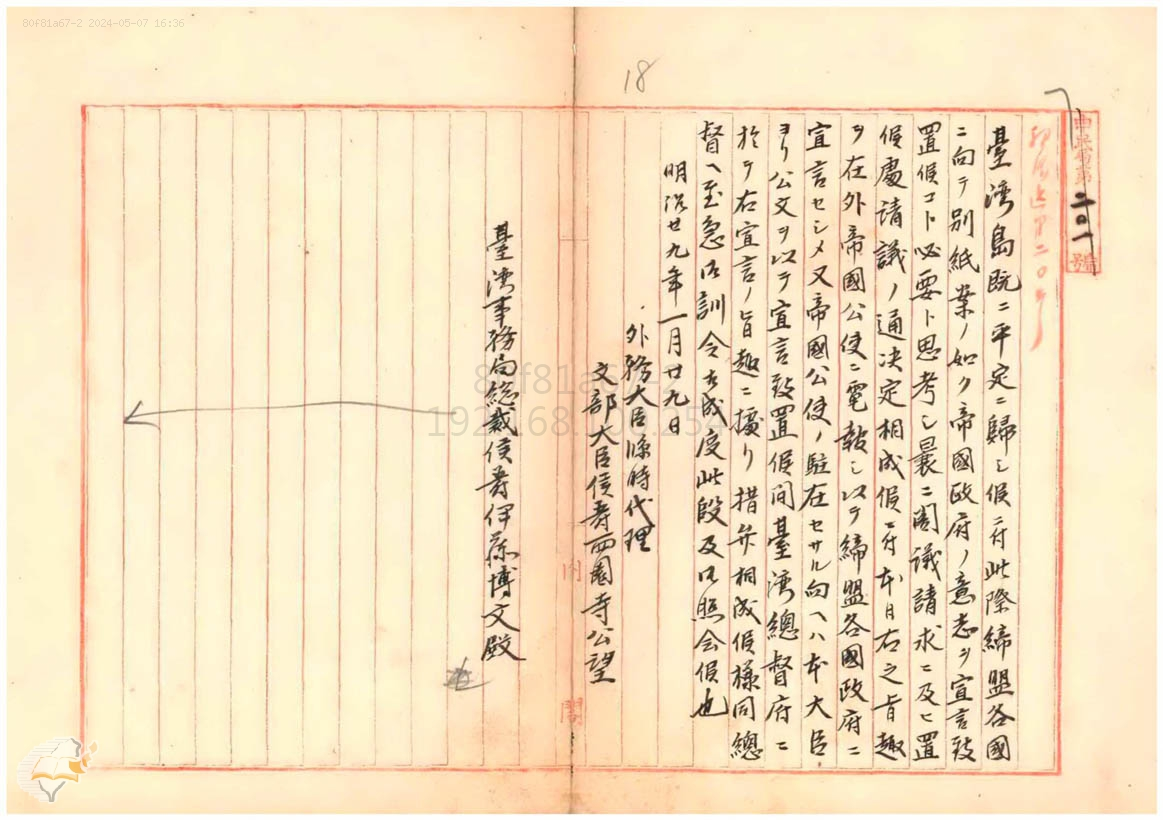 80f81a67-2 2024-05-07 16:36
18
第二〇一號
臺灣島既ニ平定ニ歸シ候ニ付此際締盟各國
ニ向テ別紙案ノ如ク帝國政府ノ意志ヲ宣言致
置候コト必要ト思考シ曩ニ閣議請求ニ及ヒ置
候處請議ノ通決定相成候ニ付本日右之旨趣
ヲ在外帝國公使ニ電報シ以テ締盟各國政府ニ
宣言セシメ又帝國公使ノ駐在セサル向ヘハ本大臣
ヨリ公文ヲ以テ宣言致置候間臺灣總督府ニ
於テ右宣言ノ旨趣ニ據リ措弁相成候樣同總
督ヘ至急御訓令相成度此段及御照会候也
明治廿九年一月廿九日
外務大臣臨時代理
文部大臣侯爵西園寺公望
臺湾事務局総裁侯爵伊藤博文殿
内閣
80f81a67-2
192.68.100.254